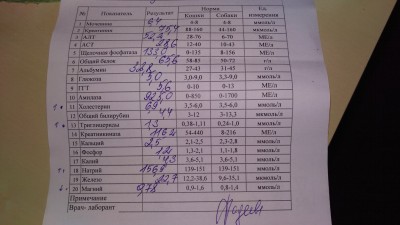 № Показатель Результат Норма Ед. измерения
Кошки Собаки
1 Мочевина 6,4 6-8 4-8 ммоль/л
2 Креатинин 75,4 88-160 44-160 мкмоль/л
3 АЛТ 52,2 28-76 6-70 МЕ/л
4 АСТ 28,6 12-40 10-43 МЕ/л
5 Щелочная фосфатаза 133,0 0-135 8-156 МЕ/л
6 Общий белок 65,6 58-85 50-72 г/л
7 Альбумин 32,8 27-43 31-45 г/л
8 Глюкоза 3,0 3,0-9,0 3,3-6,0 ммоль/л
9 ГГТ 5,6 0-10 0-13 МЕ/л
10 Амилаза 923,0 0-850 0-1700 МЕ/л
11 Холестерин 6,9 3,5-6,0 3,5-6,0 ммоль/л
12 Общий билирубин 4,4 3-12 3-13,3 мкмоль/л
13 Триглицериды 1,3 0,38-1,11 0,24-1,0 ммоль/л
14 Креатинкиназа 116,2 54-440 8-216 МЕ/л
15 Кальций 2,5 2,1-2,5 2,3-2,8 ммоль/л
16 Фосфор 1,2 1,3-2,1 1,1-1,8 ммоль/л
17 Калий 4,3 3,6-5,1 3,6-5,1 ммоль/л
18 Натрий 139-151 139-151 ммоль/л
19 Железо 12,2-38,6 9,6-35,1 мкмоль/л
20 Магний 0,9-1,6 0,8-1,4 ммоль/л
Примечания
Врач- лаборант